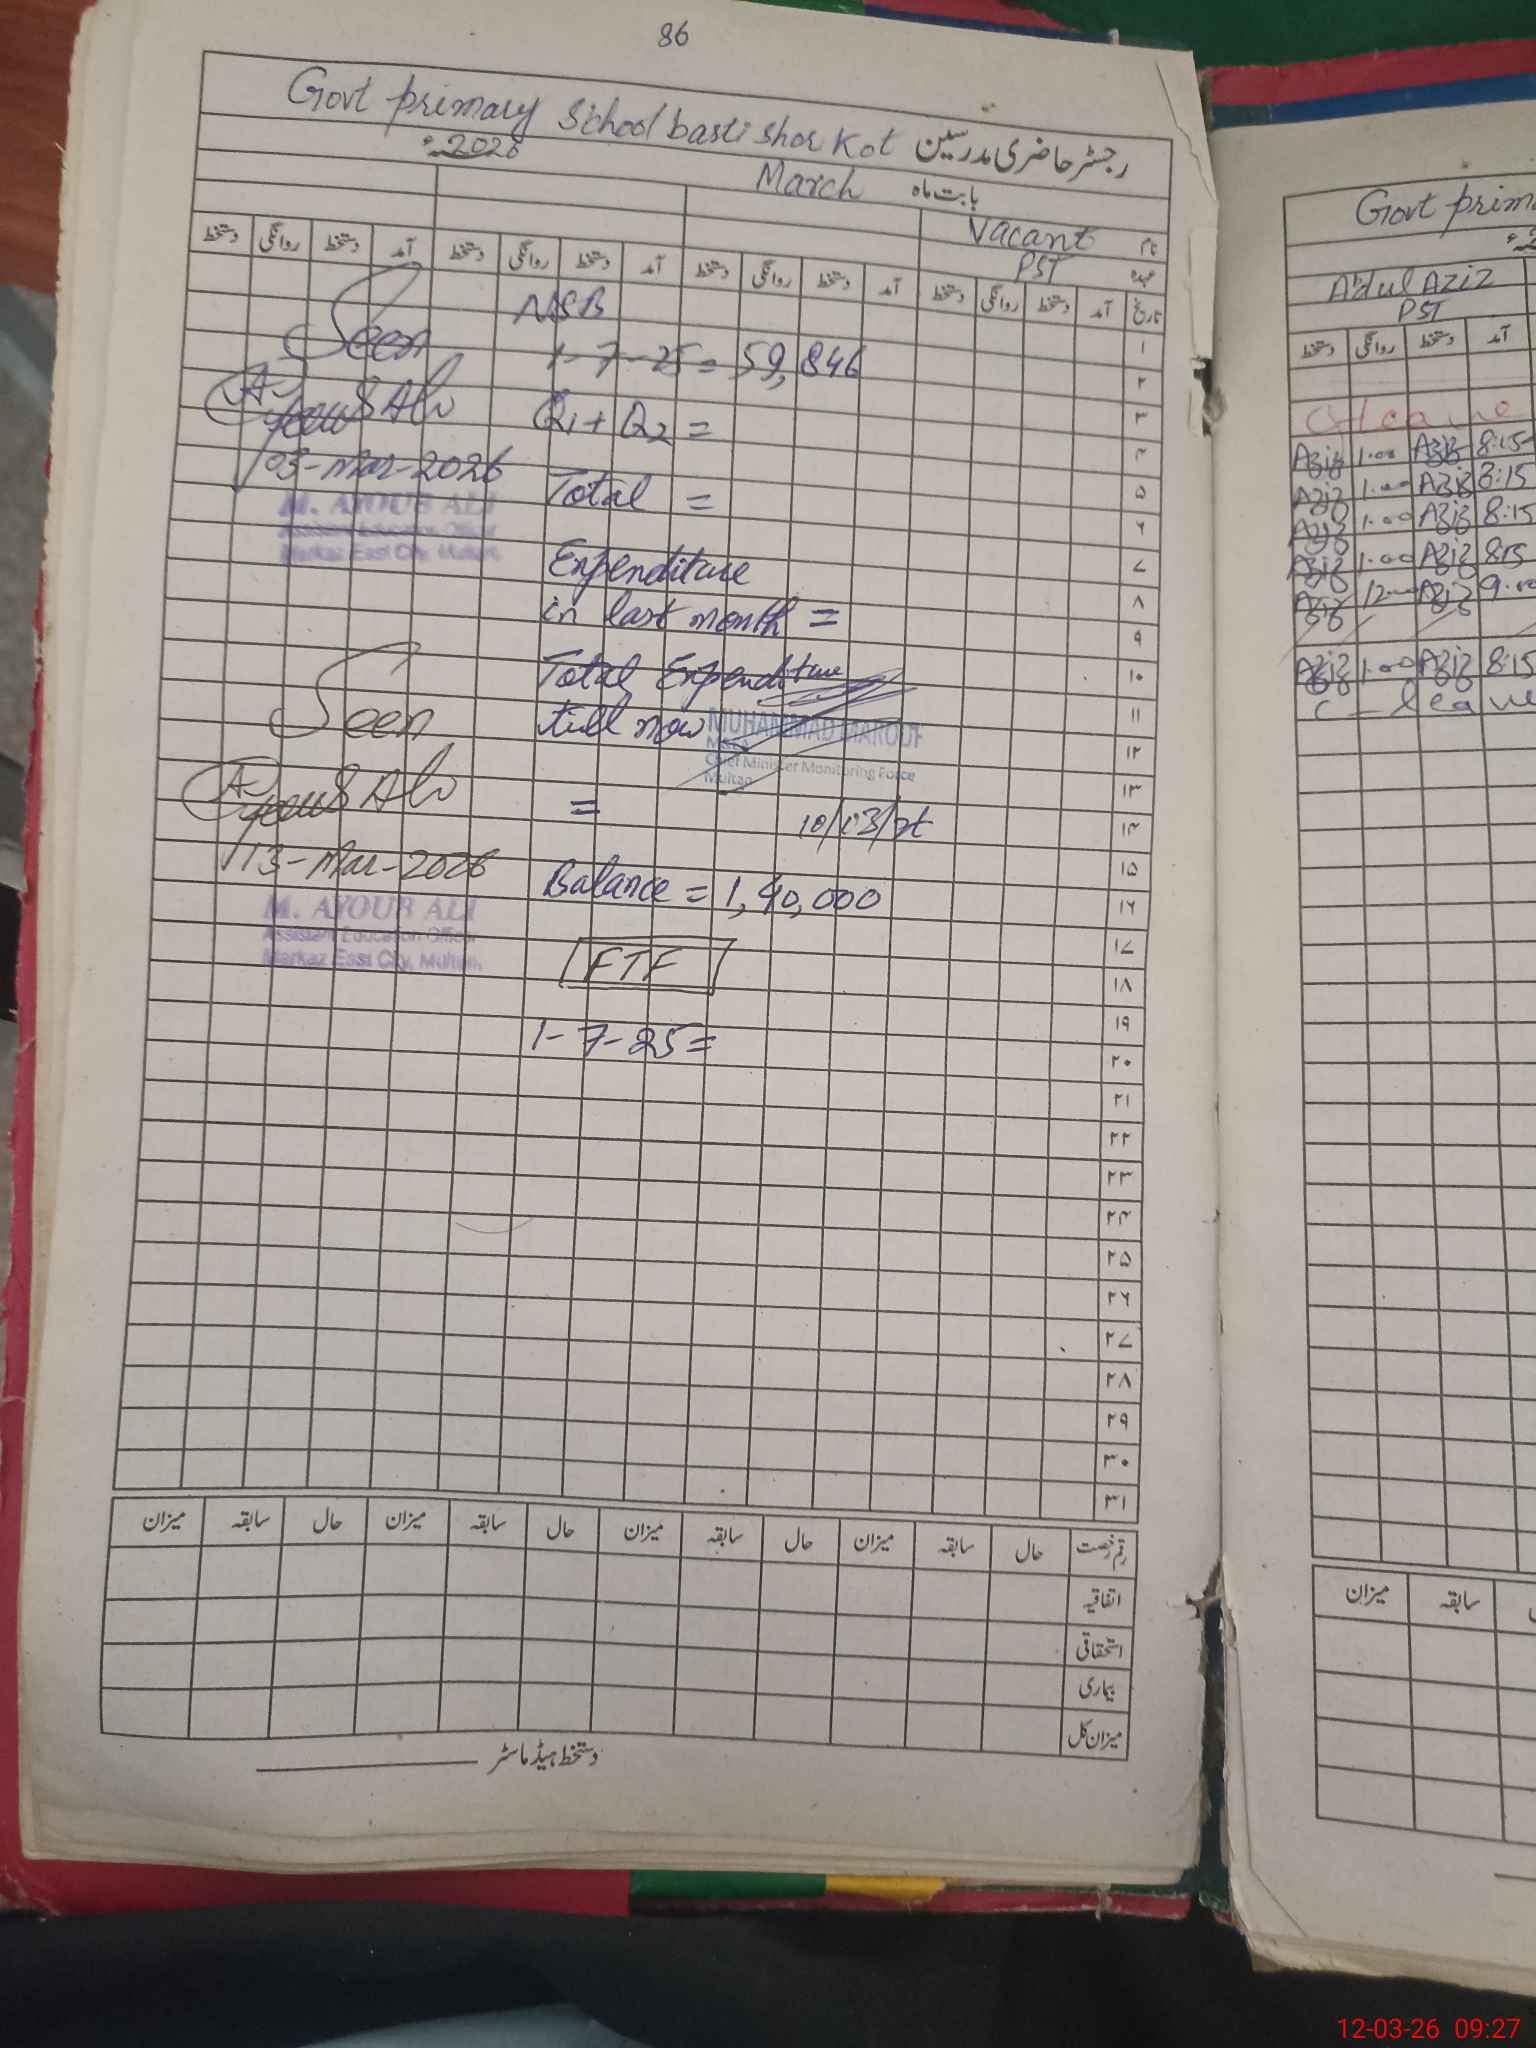 86
Govt primary School basti shor Kot رجسٹر حاضری مدرسین
2026ء
March بابت ماہ
Vacant نام
PST عہدہ
دستخط روانگی دستخط آمد دستخط روانگی دستخط آمد دستخط روانگی دستخط آمد دستخط روانگی دستخط آمد تاریخ
NSB
1-7-25= 59,846
Q1+Q2 =
Total =
Expenditure
in last month =
Total Expenditure
till now
=
MUHAMMAD MAROOF
MEA
Chief Minister Monitoring Force
Multan
10/03/
Balance = 1,40,000
FTF
1-7-25=
Seen
Ayoub Ali
03-Mar-2026
M. AYOUB ALI
Assistant Education Officer
Markaz East City, Multan.
Seen
Ayoub Ali
13-Mar-2026
M. AYOUB ALI
Assistant Education Officer
Markaz East City, Multan.
۱
۲
۳
۴
۵
۶
۷
۸
۹
۱۰
۱۱
۱۲
۱۳
۱۴
۱۵
۱۶
۱۷
۱۸
۱۹
۲۰
۲۱
۲۲
۲۳
۲۴
۲۵
۲۶
۲۷
۲۸
۲۹
۳۰
۳۱
میزان سابقہ حال میزان سابقہ حال میزان سابقہ حال میزان سابقہ حال رقم رخصت
اتفاقیہ
استحقاقی
بیماری
میزان کل
دستخط ہیڈ ماسٹر
Govt prim
Abdul Aziz
PST
دستخط روانگی دستخط آمد
Aziz 1.00 Aziz 8:15
Aziz 1.00 Aziz 8:15
Aziz 1.00 Aziz 8:15
Aziz 1.00 Aziz 8:15
Aziz 12.00 Aziz 9.00
Aziz 1.00 Aziz 8:15
C - leave
میزان سابقہ
12-03-26 09:27